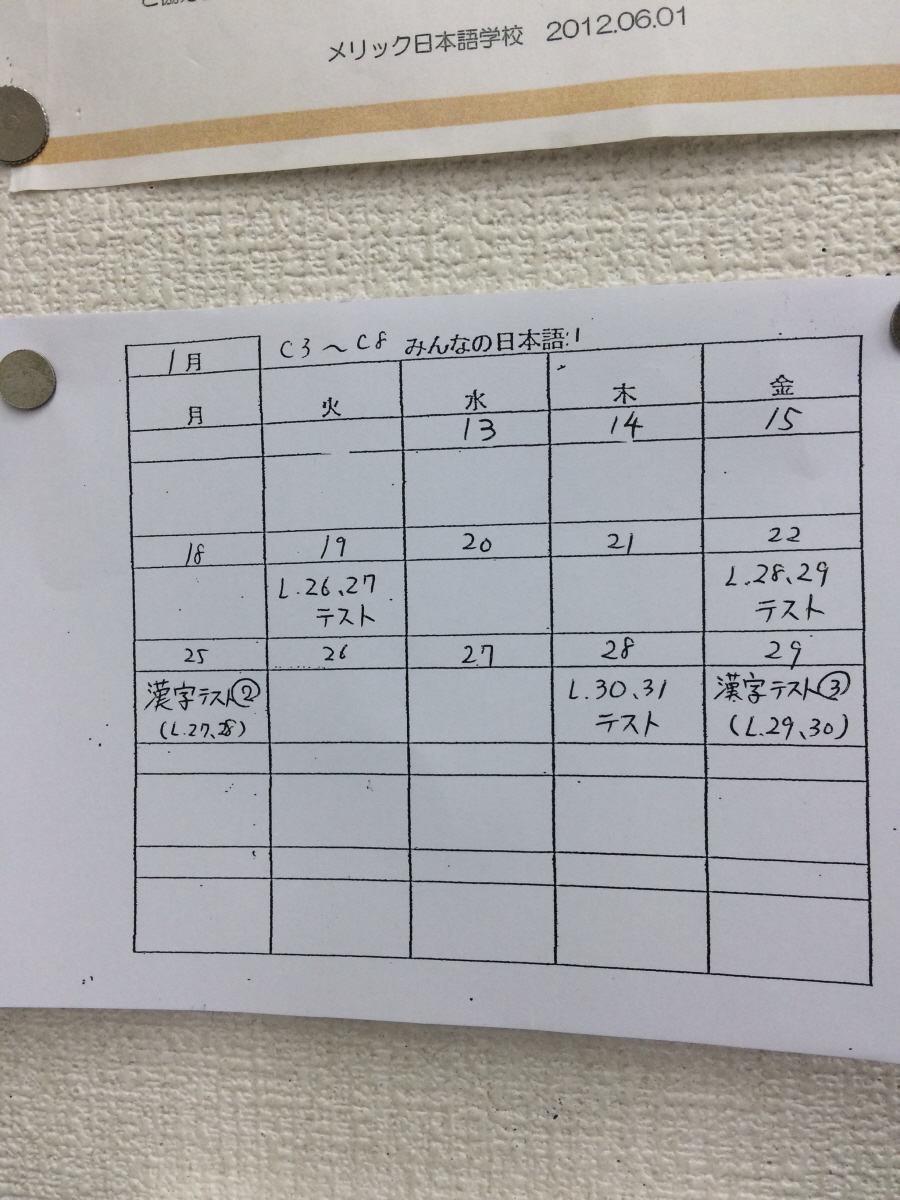 メリック日本語学校 2012.06.01
1月 C3～C8 みんなの日本語
月 火 水 木 金
13 14 15
18 19 20 21 22
L.26、27 L.28、29
テスト テスト
25 26 27 28 29
漢字テスト② L.30、31 漢字テスト③
(L.27、28) テスト (L.29、30)